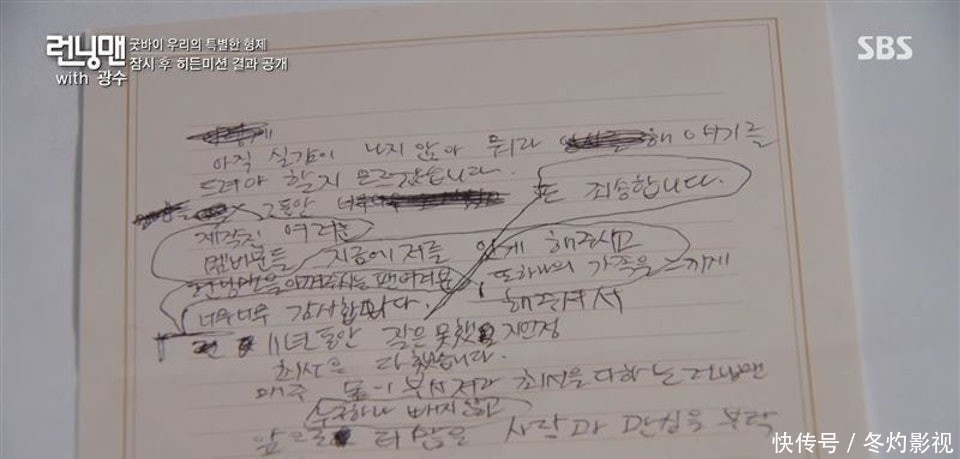 런닝맨
with 광수
굿바이 우리의 특별한 형제
잠시 후 히든미션 결과 공개
SBS
아직 실감이 나지 않아 뭐라 해 얘기를
드려야 할지 모르겠습니다.
그동안 너무 또 죄송합니다.
제작진 여러분
멤버분들 지금에 저를 있게 해주시고
런닝맨을 아껴주시는 팬여러분 또하나의 가족을 느끼게
너무너무 감사합니다. 해주셔서
11년동안 잘은 못했지만
최선을 다했습니다.
매주 몸이 부서져라 최선을 다하는 런닝맨
누구하나 빠지지않고
앞으로 더 많은 사랑과 관심을 부탁
快传号 / 冬灼影视